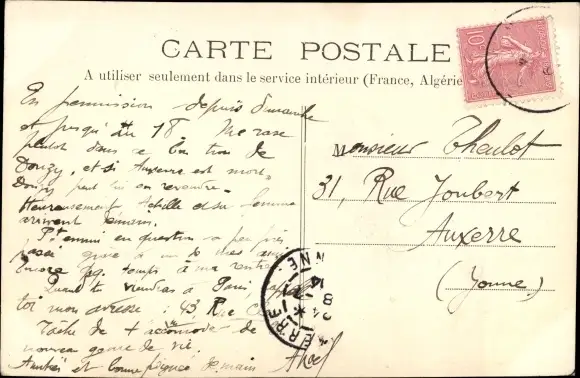 CARTE POSTALE
A utiliser seulement dans le service intérieur (France, Algérie
10
En permission depuis dimanche
et jusqu'au 18. Me rase
plutôt dans ce bon trou de
Donzy, et si Auxerre est mort,
Donzy peut lui en revendre.
Heureusement Achille et sa femme
arrivent demain.
P't ennui en question a peu près
passé grâce à un de mes amis
Encore qq. temps à ma rentrée
Quand tu viendras à Paris,
toi mon adresse : 43, Rue
Tâche de t'accomode de
nouveau genre de vie.
Amitiés et bonne poignée de main
Monsieur Theulot
31, Rue Joubert
Auxerre
(Yonne)